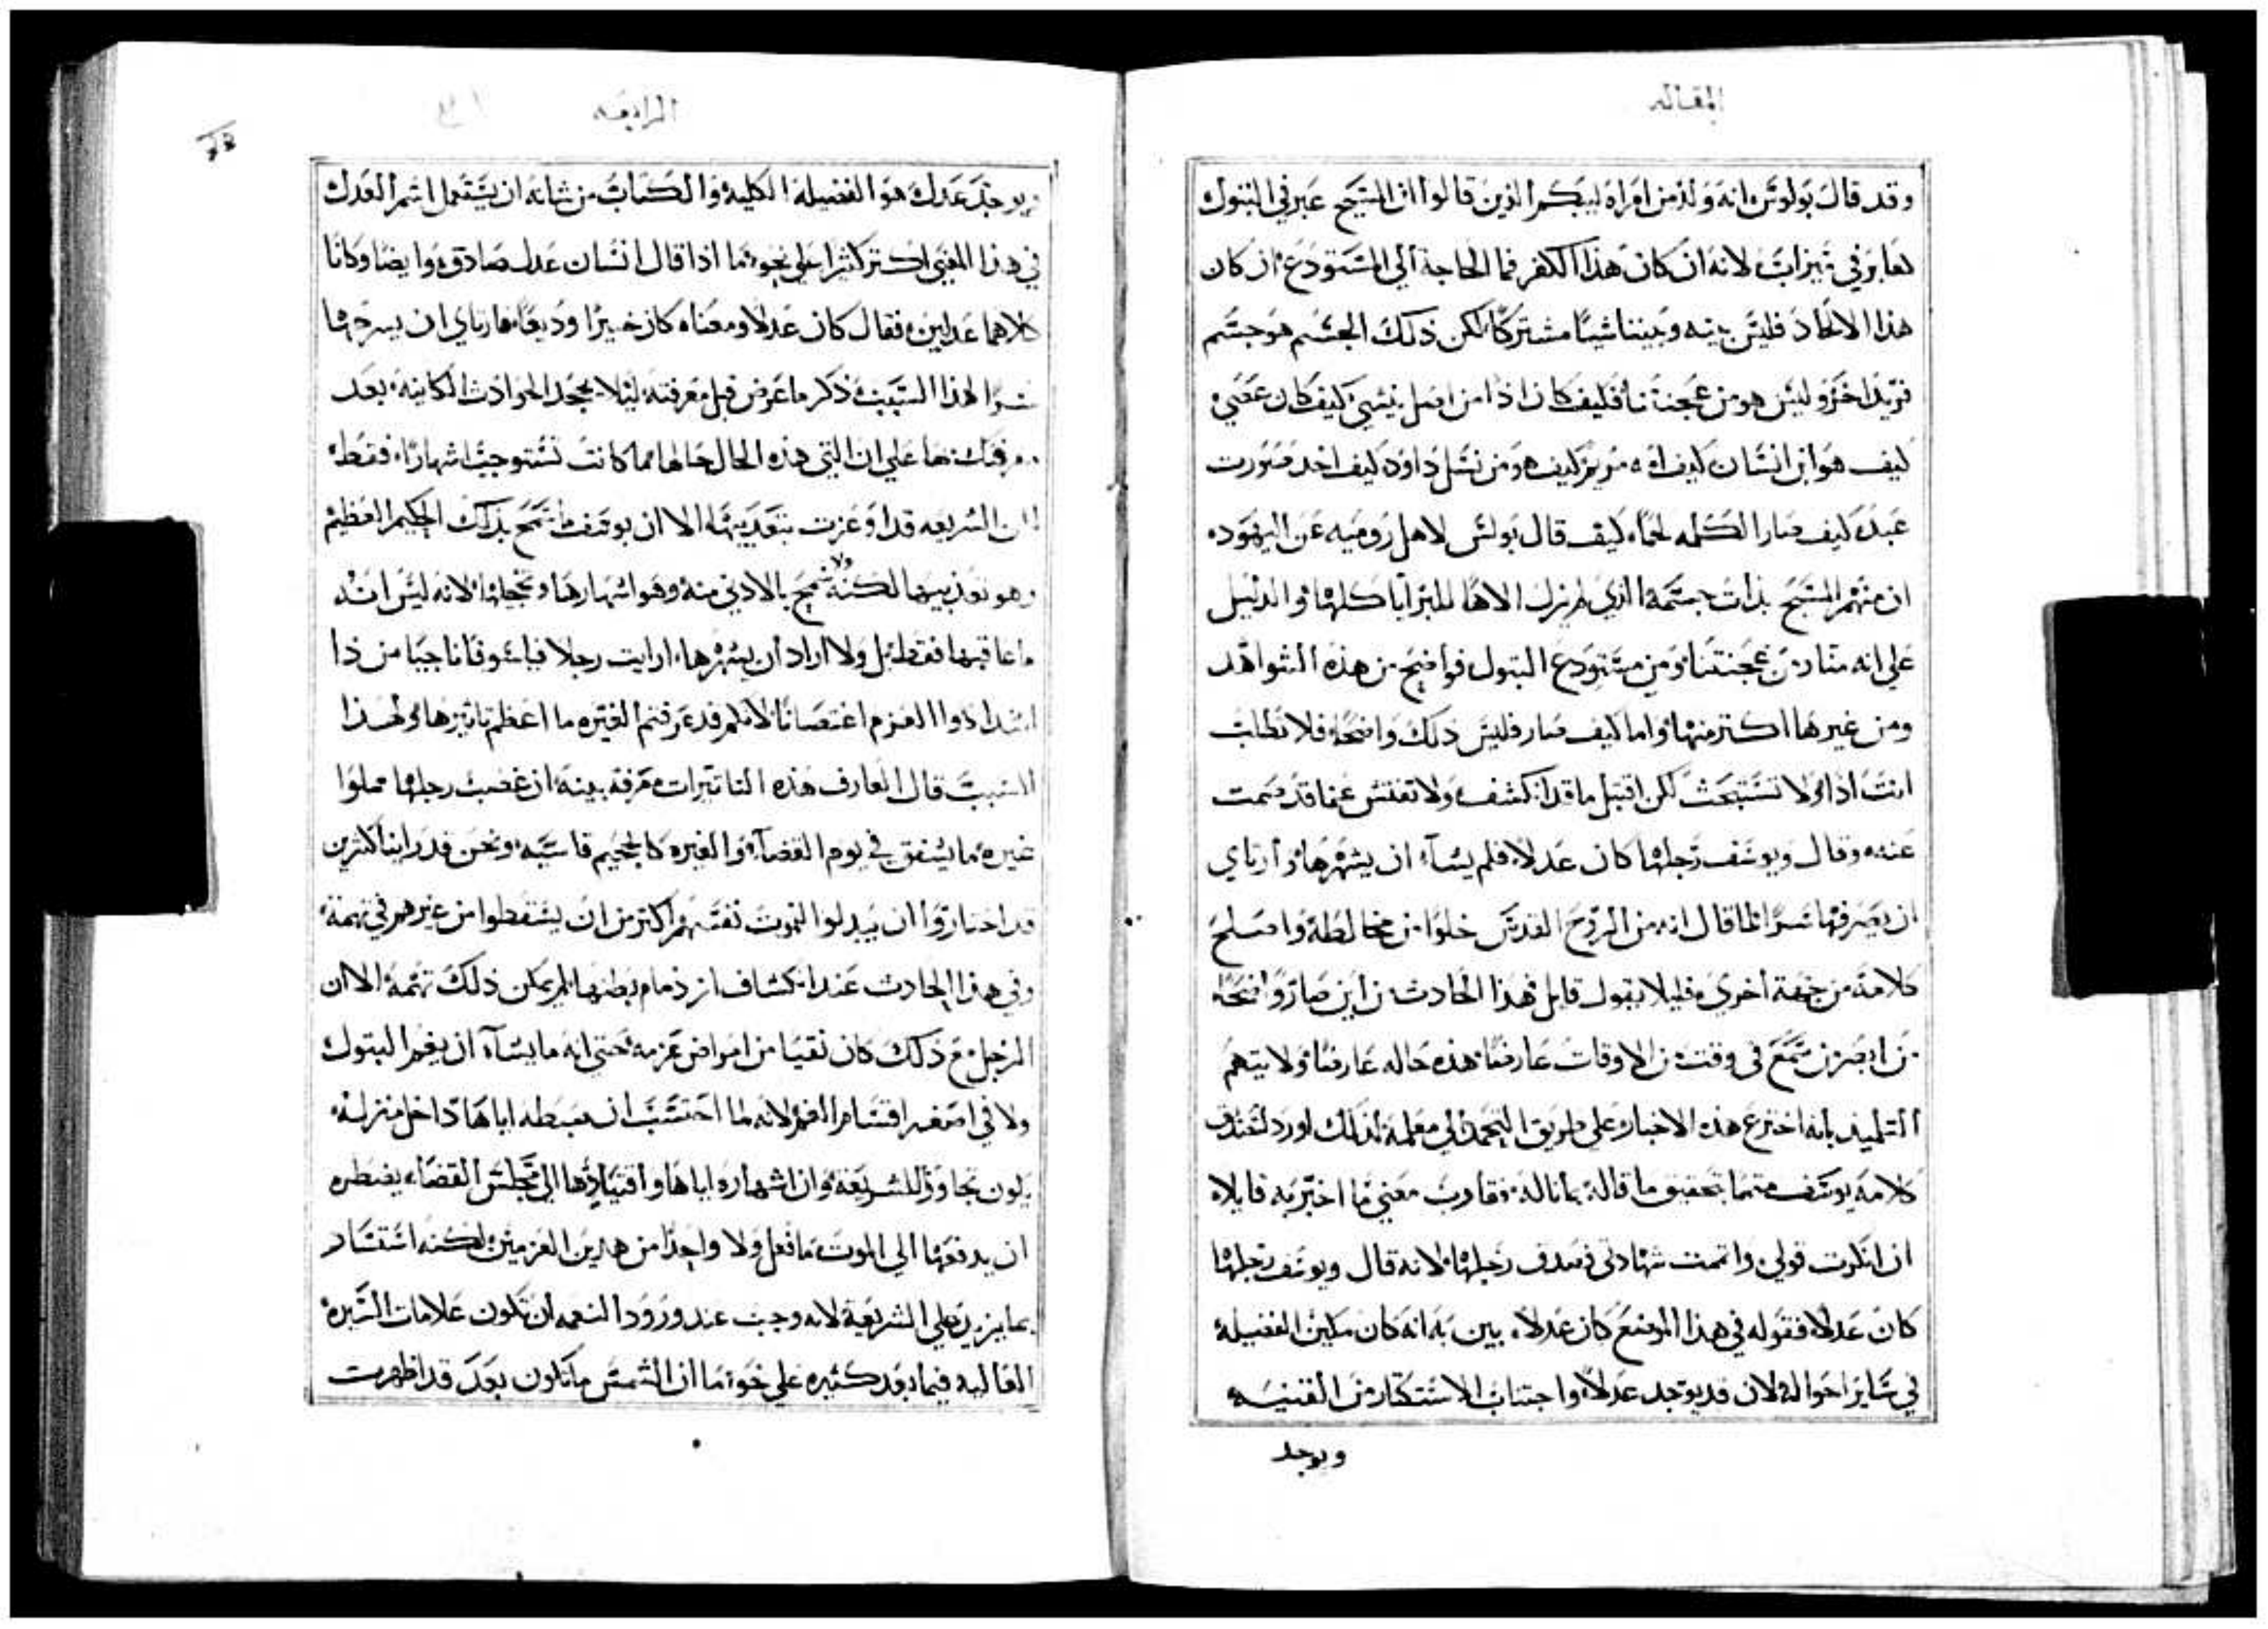 المقاله
وقد قال بولوس انه ولد من امراه ليبكم الذين قالوا ان المسيح عبر في البتول
كعابر في ميزاب لانه ان كان هذا الكفر فما الحاجة الي المستودع ان كان
هذا الاتحاد فليس بينه وبيننا شيئا مشتركا لكن ذلك الجسم هو جسم
فريد اخر وليس هو من عجنتنا فكيف كان اذا من اصل يسي كيف كان عصي
كيف هو ابن انسان كيف امه مريم كيف هو من نسل داود كيف اخد صورت
عبد كيف صار الكلمه لحما كيف قال بولس لاهل روميه عن اليهود
ان منهم المسيح بذات جسمه الذي لم يزل الاها للبرايا كلها والدليل
علي انه صار من عجنتنا ومن مستودع البتول فواضح من هذه الشواهد
ومن غيرها اكتر منها واما كيف صار فليس ذلك واضحا فلا تطلب
انت اذا ولا تستبحث لكن اقتبل ما قد انكشف ولا تفتش عما قد صمت
عنه وقال ويوسف رجلها كان عدلا فلم يشآ ان يشهرها وارتاي
ان يصرفها سرا لما قال انه من الروح القدس خلوا من مخالطة واصلح
كلامه من جهة اخري فليلا يقول قايل فهذا الحادث من اين صار واضحا
من ابصر من سمع في وقت من الاوقات عارضا هذه حاله عارضا ولا يتهم
التلميذ بانه اخترع هذه الاخبار علي طريق التحمد الي معلمه لذلك اورد
كلامه يوسف متمما تحقيق ما قاله بما ناله فقارب معني ما اخبر به قايلا
ان انكرت قولي واتهمت شهادتي فصدق رجلها لانه قال ويوسف رجلها
كان عدلا فقوله في هذا الموضع كان عدلا يبين به انه كان مكين الفضيله
في ساير احواله لان قد يوجد عدلا واجتناب الاستكتار من القنيه
ويوجد
الرابعه
ويوجد عدل هو الفضيلة الكلية والكتاب من شانه ان يستعمل اسم العدل
في هذا المعني اكتر كثيرا علي نحو ما اذا قال انسان عدل صادق وايضا وكانا
كلاهما عدلين فقال كان عدلا ومعناه كان خيرا وديعا فارتاي ان يسرحها
سرا لهذا السبب ذكر ما عرض قبل معرفته ليلا يجحد الحوادث الكاينة بعد
معرفتك بها علي ان التي هذه الحال حالها مما كانت تستوجب اشهارا فقط
لان الشريعه قد اوعزت بتعذيبها الا ان يوسف سمح بذلك الحكم العظيم
وهو تعذيبها لكنه ولا سمح بالادني منه وهو اشهارها وتخجيلها لانه ليس انه
ما عاقبها فقط بل ولا اراد ان يشهرها ارايت رجلا فيلسوفا ناجيا من ذا
اشد ادوا العزم اغتصابا لانكم قد عرفتم الغيره ما اعظم تاثيرها ولهذا
السبب قال العارف هذه التاتيرات معرفة بينة ان غضب رجلها مملوا
غيره ما يشفق في يوم القضآ والغيره كالجحيم قاسيه ونحن قد راينا كثيرين
قد اختاروا ان يبدلوا للموت نفسهم اكتر من ان يسقطوا من غيرهم في تهمة
وفي هذا الحادث عند انكشاف از دمام بطنها لم يكن ذلك تهمة الا ان
الرجل مع ذلك كان نقيا من امراض عزمه حتي انه ما يشآ ان يغم البتول
ولا في اصغر اقسام الغم لانه لما احتسب ان ضبطه اياها داخل منزله
يكون تجاوز للشريعة وان اشهاره اياها واقتيادها الي مجلس القضاء يضطره
ان يدفعها الي الموت ما فعل ولا واحدا من هذين العزمين لكنه استسار
بما يزيد علي الشريعة لانه وجب عند ورود النعمه ان تكون علامات السيره
العاليه فيما بعد كثيره علي نحو ما ان الشمس ما تكون بعد قد اظهرت